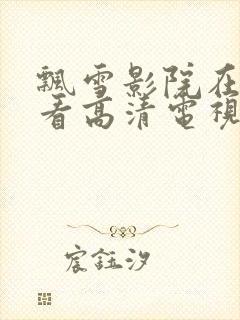 飄雪影院在
看高清電視
宸鈺汐